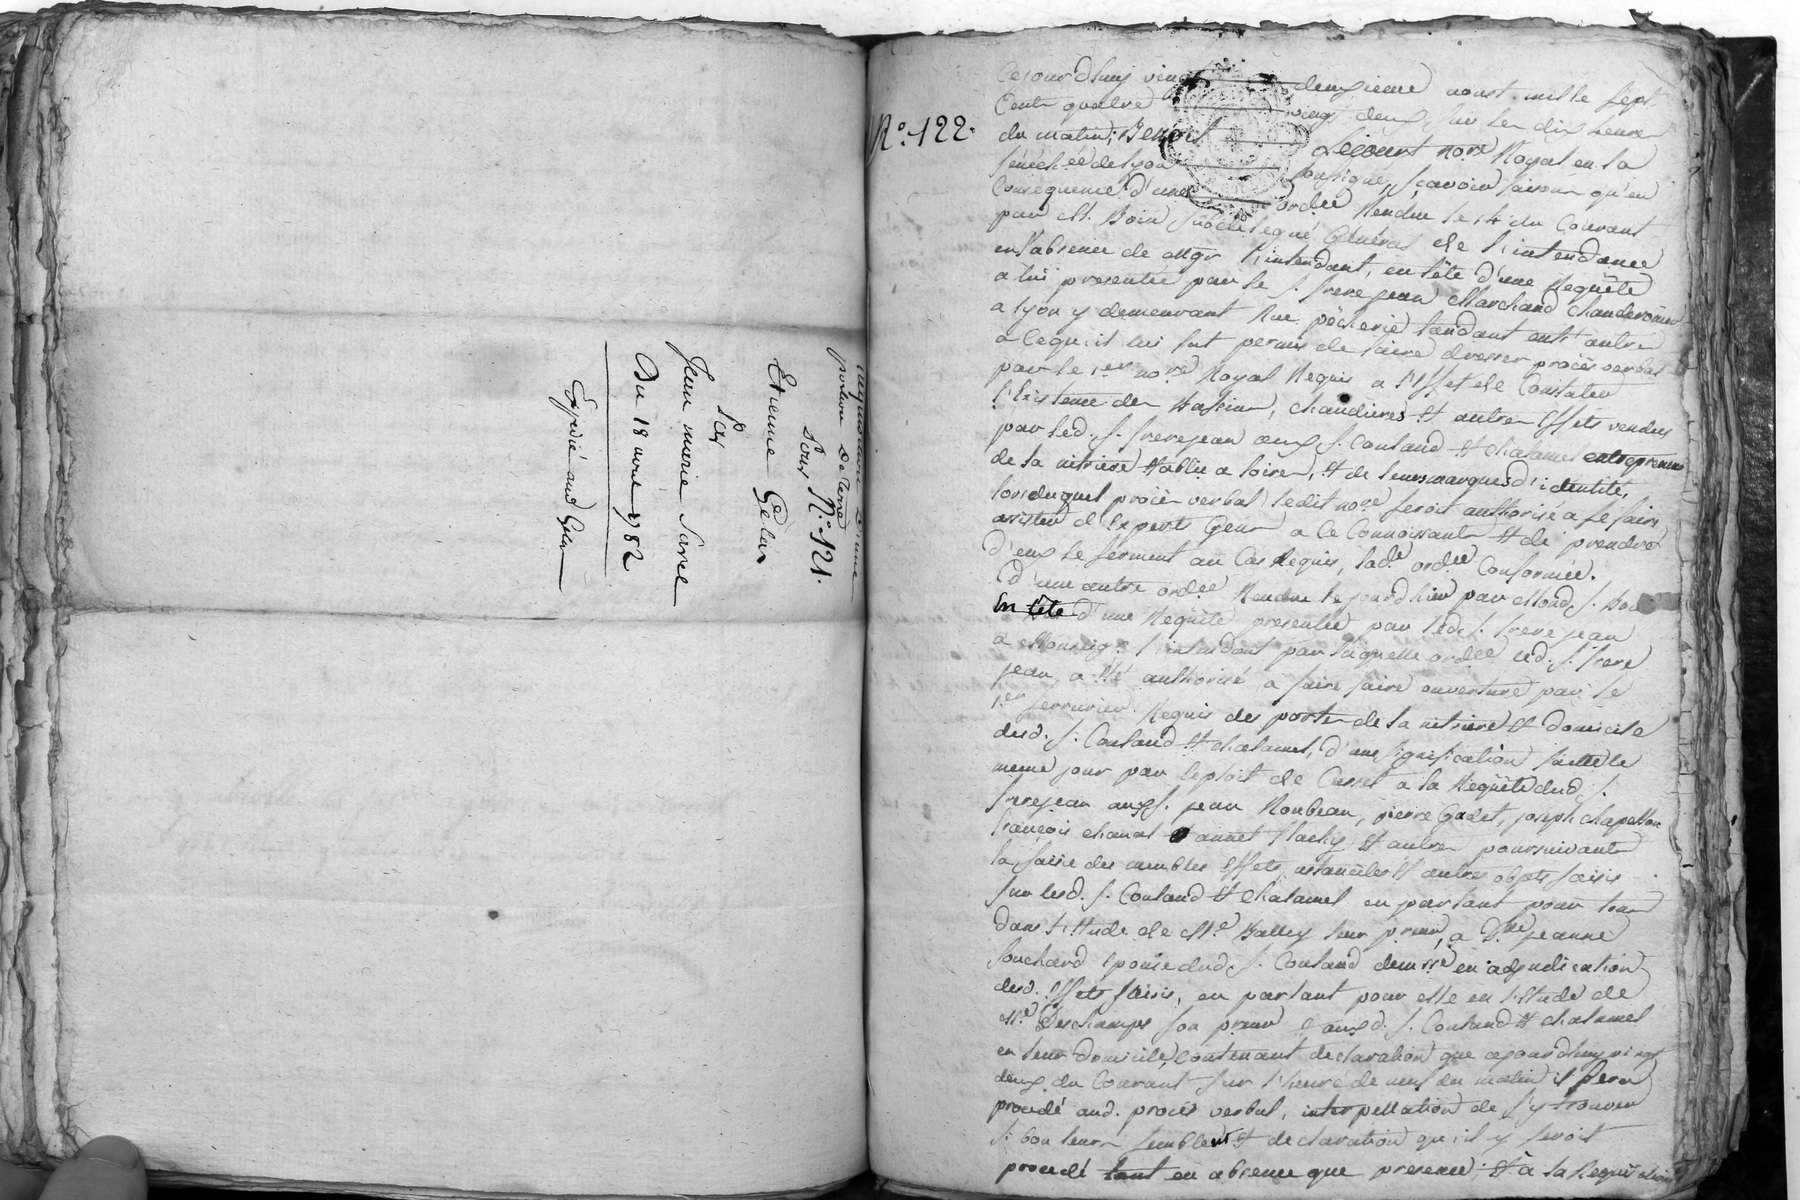 portion de terre
Pour N.° 121.
Etienne Gelas
Par
Jean marie Savel
Du 18 avril 1782
Expedié aud Gelas
N.° 122.
Cejourdhuy vingt deuxieme aoust mille sept
Cent quatre vingt deux, sur les dix heures
du matin; Benoit Lecourt nore Royal en la
sénéchée de Lyon soussigné, sçavoir faisons qu'en
Consequence d'une ordce Rendue le 14 du Courant
par M. Boin subdelegué General de l'intendance
en l'absence de Mgr l'intendant, en tête d'une Requête
a lui presentée par le S. frerejean Marchand Chauderonier
a Lyon y demeurant Rue pêcherie tendant entr'autres
a cequ'il lui fut permis de faire dresser procès verbal
par le 1er nore Royal Requis a l'effet de Constater
l'Existence des Bassins, chaudieres et autres Effets vendus
par led. S. frerejean aux S. Coulaud et chalamel entrepreneurs
de la nitriere établie a loire, et de leurs marques d'identité,
lors duquel procès verbal ledit nore seroit authorisé a se faire
assister d'Expert Gens a ce Connoissants et de prendre
d'eux le serment au Cas Requis, lade ordce Conformée.
D'une autre ordce Rendue le jourd'hier par Mond. S. Boin
En tête d'une Requête presentée par led. S. frerejean
a Monseig. l'intendant par laquelle ordce led. S. frere
jean a été authorisé a faire faire ouverture par le
1er serrurier Requis des portes de la nitriere et domicile
desd. S. Coulaud et chalamel, d'une signification faitte le
meme jour par Exploit de Cusset a la Requête dud. S.
frerejean aux S. jean Roubeau, pierre Godet, joseph chapellon
françois chanal et annet flachy et autres poursuivants
la saisie des meubles Effets, ustanciles et autres objets saisis
sur lesd. S. Coulaud et Chalamel en parlant pour tous
dans l'Etude de Me Balley leur procur, a Dlle jeanne
souchard Epouse dud. S. Coulaud en adjudication
desd. Effets saisis, en parlant pour elle en l'Etude de
Me Deschamps son procur et auxd. S. Coulaud et chalamel
en leur domicile, Contenant declaration que cejourdhuy vingt
deux du Courant sur l'heure de neuf du matin il sera
procedé aud. procès verbal, interpellation de s'y trouver
si bon leur semble et declaration qu'il y seroit
procedé tant en absence que presence; et a la Requisition